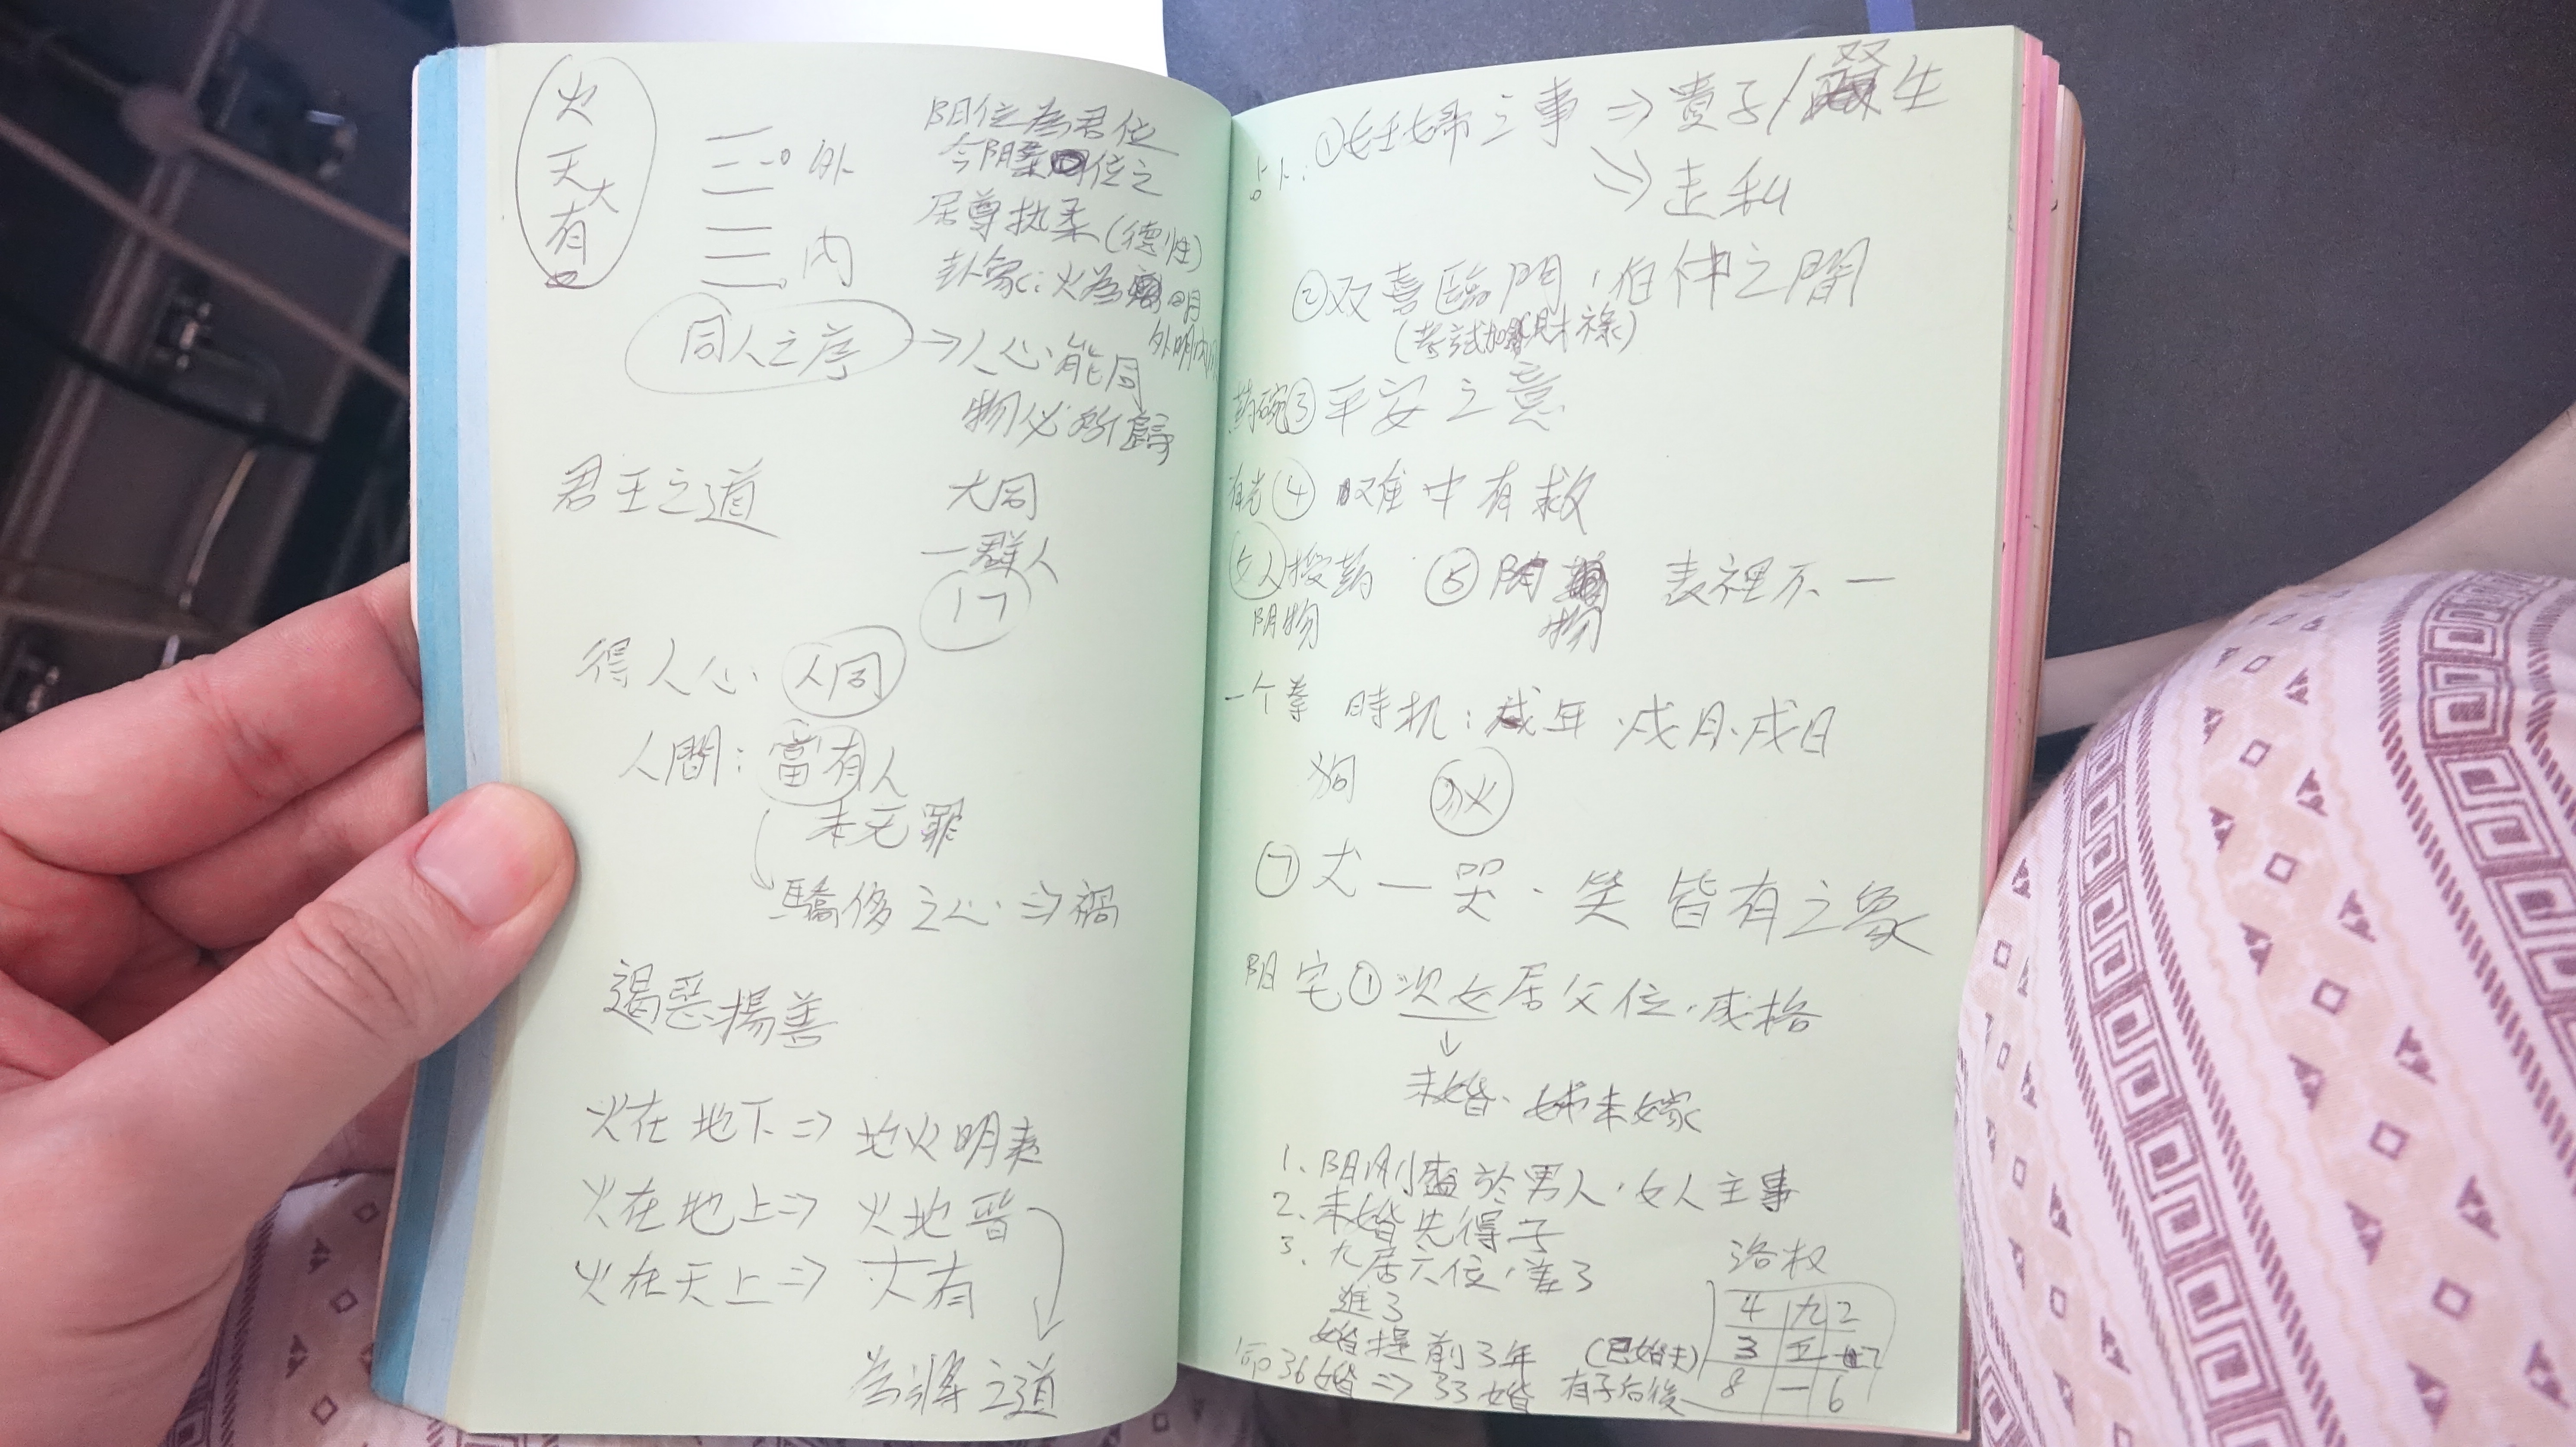 火
天大
有
外
内
阳位為君位
今阴柔位之
居尊执柔(德性)
卦象:火為明
外明内
同人之序 → 人心能同
物必所歸
君王之道
大同
一群人
得人心 人同
人間:當有人
本无罪
驕侈之心 ⇒ 禍
遏惡揚善
火在地下 ⇒ 地火明夷
火在地上 ⇒ 火地晉
火在天上 ⇒ 大有
為將之道
占卜:①妊婦之事 ⇒ 貴子/双生
⇒ 走私
②双喜臨門,伯仲之間
(考試加財祿)
药碗 ③平安之意
有光 ④ 难中有救
女人授药 ⑤ 物 表裡不一
阴物
一个拳 時机:戌年·戌月·戌日
狗 狄
⑦ 犬 一哭·笑皆有之象
阳宅①次女居父位,成格
↓
未婚·姊未嫁
1、阴刚盛於男人,女人主事
2、未婚先得子
3、九居六位,差3
進3
婚提前3年 (已婚夫)
命36婚 ⇒ 33婚 有子后後
洛
4 九 2
3 五 7
8 一 6